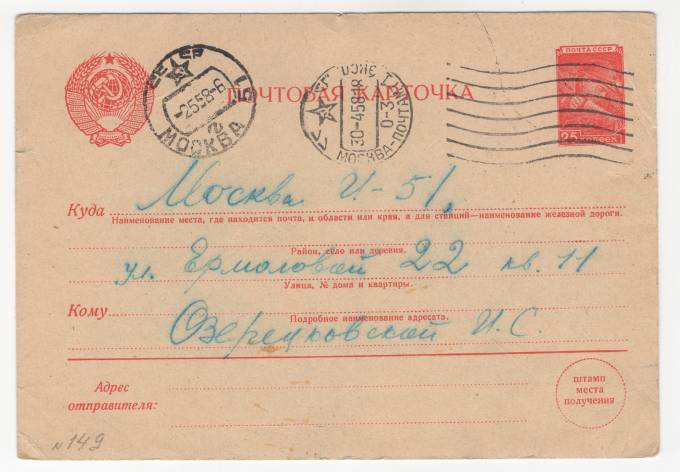 ПОЧТА СССР
25 копеек
ПОЧТОВАЯ КАРТОЧКА
МОСКВА
-2558-6
51
МОСКВА-ПОЧТАМТ
30-458-18
0-3
ЭКСП
Куда Москва И-51,
Наименование места, где находится почта, и области или края, а для станций—наименование железной дороги.
Район, село или деревня.
ул. Ермоловой 22 кв. 11
Улица, № дома и квартиры.
Кому
Подробное наименование адресата.
Озерецковской И.С.
Адрес
отправителя:
штамп
места
получения
N 149